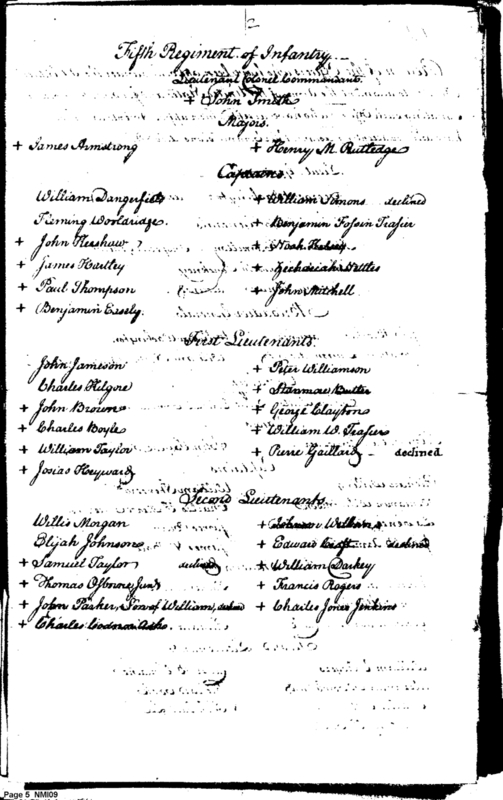 Fifth Regiment of Infantry
Lieutenant Colonel Commandant
+ John Smith
Majors
+ James Armstrong + Henry M. Rutledge
Captains
William Dangerfield + William Simons declined
Fleming Wooldridge + Benjamin Fossin Trasier
+ John Kershaw + Noah
+ James Hartley + Zechariah Nettles
+ Paul Thompson + John Mitchell
+ Benjamin Easely
First Lieutenants
John Jameson + Peter Williamson
Charles Kilgore + Stanmore Butler
+ John Brown + George Clayton
+ Charles Boyle + William W. Trasier
+ William Taylor + Pierre Gaillard declined
+ Josias Heyward
Second Lieutenants
Willis Morgan + Johnson William
Elijah Johnson + Edward Croft declined
+ Samuel Taylor declined + William Darkey
+ Thomas Osborne Junr + Francis Rogers
+ John Parker, Son of William, declined + Charles Jones Jenkins
+ Charles
Page 5 NMI09